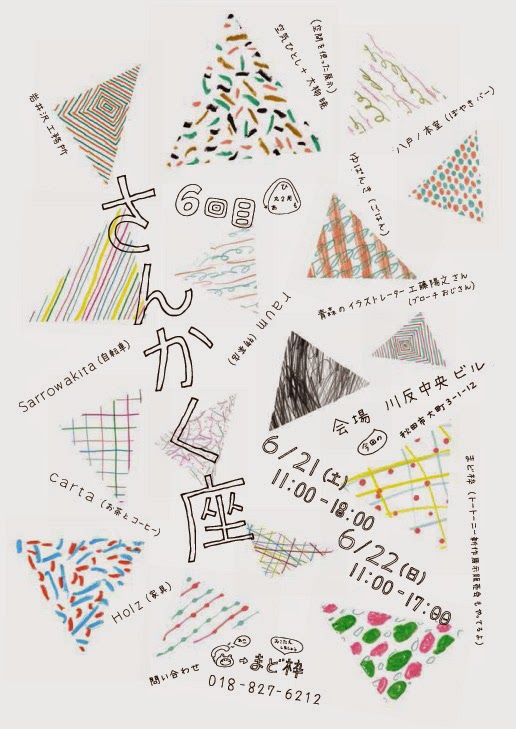 (空間を使った展示)
空気ひとし+大柳暁
岩井沢工務所
八戸ノ本室(ぼやきバー)
6回目
さんかく座
ゆぱんき(ごはん)
青森のイラストレーター工藤陽之さん
(ブローチおじさん)
raum
Sarrowakita(自転車)
会場 川反中央ビル
今回の
秋田市大町3-1-12
6/21(土)
11:00-18:00
6/22(日)
11:00-17:00
carta(お茶とコーヒー)
まど枠(トートーニー新作展示販売会もやってるよ)
Holz(家具)
問い合わせ
まど枠
018-827-6212